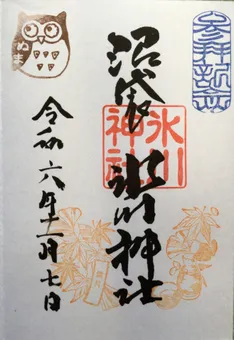 参拝記念
沼袋
氷川神社
氷川
神社
令和六年十一月七日
ぬま